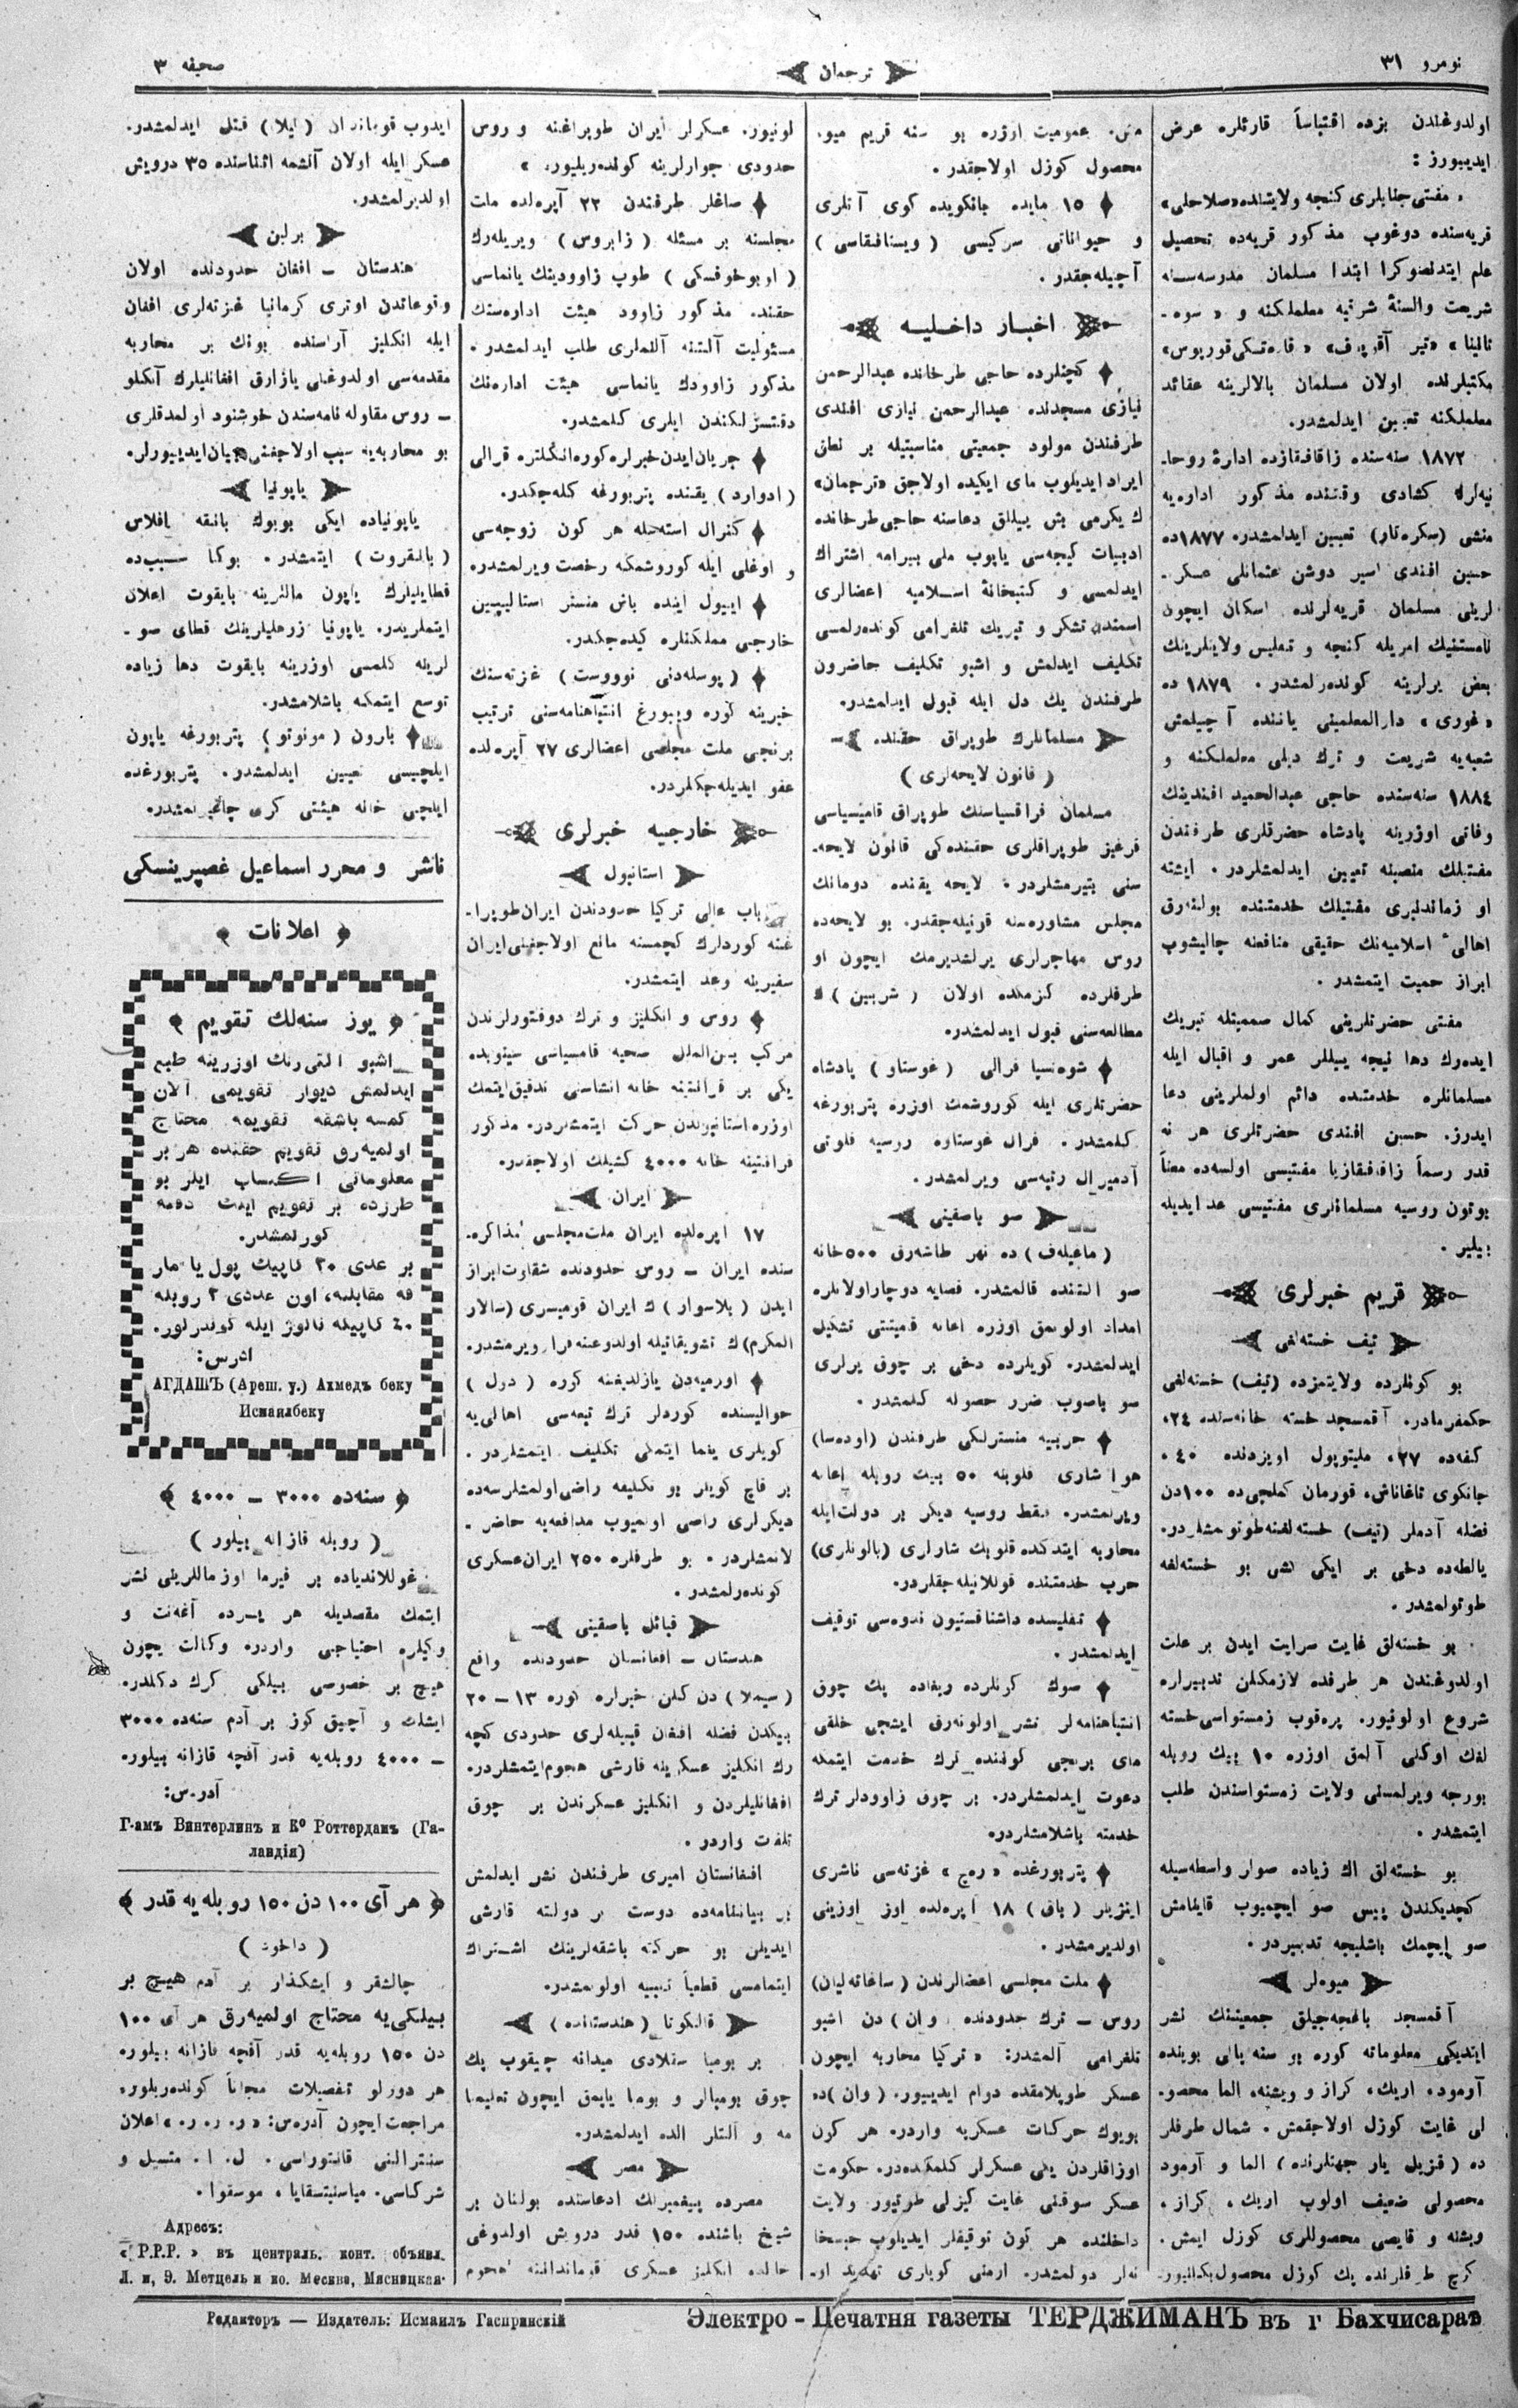 نومرو ٣١
ترجمان
صحیفه ٣
اولدوغندن بزده اقتباساً قارئلره عرض
ایدییورز :
مفتی جنابلری کنجه ولایتنده «صلاحلی»
قریه‌سنده دوغوب مذکور قریه‌ده تحصیل
علم ایتدکصوکرا ابتدا مسلمان مدرسه‌سنه
شریعت والسنهٔ شرقیه معلملکنه و
مکتبلرنده اولان مسلمان بالالرینه عقائد
معلملکنه تعیین ایدلمشدر.
١٨٧٢ سنه‌سنده زاقافقازده ادارهٔ روحا-
نیه‌لرك کشادی وقتنده مذکور اداره‌یه
منشی (سکره‌تار) تعیین ایدلمشدر. ١٨٧٧ ده
حسین افندی اسیر دوشن عثمانلی عسکر-
لرینی مسلمان قریه‌لرنده اسکان ایچون
نامستنیك امریله کنجه و تفلیس ولایتلرینك
بعض یرلرینه کوندرلمشدر. ١٨٧٩ ده
«غوری» دارالمعلمینی یاننده آچیلمش
شعبه‌یه شریعت و ترك دیلی معلملکنه و
١٨٨٤ سنه‌سنده حاجی عبدالحمید افندینك
وفاتی اوزرینه پادشاه حضرتلری طرفندن
مفتیلك منصبنه تعیین ایدلمشلردر. ایشته
او زماندنبری مفتیلك خدمتنده بولنه‌رق
اهالیء اسلامیه‌نك حقیقی منافعنه چالیشوب
ابراز حمیت ایتمشدر.
مفتی حضرتلرینی کمال صمیمیتله تبریك
ایده‌رك دها نیجه ییللر عمر و اقبال ایله
مسلمانلره خدمتده دائم اولملرینی دعا
ایدرز. حسین افندی حضرتلری هر نه
قدر رسماً زاقافقازیا مفتیسی اولسه‌ده معناً
بوتون روسیه مسلمانلری مفتیسی عد ایدیله
بیلیر.
قریم خبرلری
تیف خسته‌لغی
بو کونلرده ولایتمزده (تیف) خسته‌لغی
حکمفرمادر. آقمسجد خسته خانه‌سنده ٢٤،
کفه‌ده ٢٧، ملیتوپول اویزدنده ٤٠،
جانکوی تاغاناش، قورمان کملجی‌ده ١٠٠ دن
فضله آدملر (تیف) خسته‌لغنه طوتولمشلردر.
یالطه‌ده دخی بر ایکی کشی بو خسته‌لغه
طوتولمشدر.
بو خسته‌لق غایت سرایت ایدن بر علت
اولدوغندن هر طرفده لازمکلن تدبیرلره
شروع اولونیور. پره‌قوب زمستواسی خسته
لغك اوکنی آلمق اوزره ١٠ بیك روبله
بورجه ویرلمسنی ولایت زمستواسندن طلب
ایتمشدر.
بو خسته‌لق اك زیاده صولر واسطه‌سیله
کچدیکندن پیس صو ایچمیوب قاینامش
صو ایچمك باشلیجه تدبیردر.
میوه‌لر
آقمسجد باغچه‌جیلق جمعیتنك نشر
ایتدیکی معلوماته کوره بو سنه یالی بوینده
آرمود، اریك، کراز و ویشنه، الما محصو-
لی غایت کوزل اولاجقمش. شمال طرفلر
ده (قزیل یار جهتلرنده) الما و آرمود
محصولی ضعیف اولوب اریك، کراز،
ویشنه و قایصی محصوللری کوزل ایمش.
کرچ طرفلرنده پك کوزل محصول بکله‌نیور-
مش. عمومیت اوزره بو سنه قریم میوه
محصول کوزل اولاجقدر.
١٥ مایده جانکویده کوی آتلری
و حیواناتی سرکیسی (ویستافقاسی)
آچیله‌جقدر.
اخبار داخلیه
کچنلرده حاجی طرخانده عبدالرحمن
نیازی مسجدنده عبدالرحمن نیازی افندی
طرفندن مولود جمعیتی مناسبتیله بر نطق
ایراد ایدیلوب مای ایکیده اولاجق «ترجمان»
ك یکرمی بش ییللق دعاسنه حاجی طرخانده
ادبیات کیجه‌سی یاپوب ملی بیرامه اشتراك
ایدلمسی و کتبخانهٔ اسلامیه اعضالری
اسمندن تشکر و تبریك تلغرامی کوندرلمسی
تکلیف ایدلمش و اشبو تکلیف حاضرون
طرفندن یك دل ایله قبول ایدلمشدر.
مسلمانلرك طوپراق حقنده
(قانون لایحه‌لری)
مسلمان فراقسیاسنك طوپراق قامیسیاسی
قرغیز طوپراقلری حقنده‌کی قانون لایحه-
سنی بتیرمشلردر. لایحه یقنده دومانك
مجلس مشاوره‌سنه قونیله‌جقدر. بو لایحه‌ده
روس مهاجرلری یرلشدیرمك ایچون او
طرفلرده کزمکده اولان (شربین) ك
مطالعه‌سنی قبول ایدلمشدر.
شوه‌تسیا قرالی (غوستاو) پادشاه
حضرتلری ایله کوروشمك اوزره پتربورغه
کلمشدر. قرال غوستاوه روسیه فلوتی
آدمیرال رتبه‌سی ویرلمشدر.
صو باصقینی
(ماغیله‌ف) ده نهر طاشه‌رق ٥٠٠ خانه
صو التنده قالمشدر. قضایه دوچار اولانلره
امداد اولونمق اوزره اعانه قمیتتی تشکیل
ایدلمشدر. کویلرده دخی بر چوق یرلری
صو باصوب ضرر حصوله کلمشدر.
حربیه منسترلکی طرفندن (اوده‌سا)
هوا شاری قلوبنه ٥٠ بیك روبله اعانه
ویرلمشدر. فقط روسیه دیکر بر دولت ایله
محاربه ایتدکده قلوبك شارلری (بالونلری)
حرب خدمتنده قوللانیله‌جقلردر.
تفلیسده داشناقستیون ندوه‌سی توقیف
ایدلمشدر.
صوك کونلرده ویغاده پك چوق
انتباهنامه‌لر نشر اولونه‌رق ایشجی خلقی
مای برنجی کوننده ترك خدمت ایتمکه
دعوت ایدلمشلردر. بر چوق زاوودلر ترك
خدمته باشلامشلردر.
پتربورغده «ره‌چ» غزته‌سی ناشری
اینژینر (باق) ١٨ آپره‌لده اوز اوزینی
اولدیرمشدر.
ملت مجلسی اعضالرندن (ساغاته‌لیان)
روس – ترك حدودنده (وان) دن اشبو
تلغرامی آلمشدر: «ترکیا محاربه ایچون
عسکر طوپلامقده دوام ایدییور. (وان) ده
بویوك حرکات عسکریه واردر. هر کون
اوزاقلردن یکی عسکرلر کلمکده‌در. حکومت
عسکر سوقنی غایت کیزلی طوتیور. ولایت
داخلنده هر کون توقیفلر ایدیلوب حبسخا
نه‌لر دولمشدر. ارمنی کویلری تهدید او-
لونیور. عسکرلر ایران طوپراغنه و روس
حدودی جوارلرینه کوندریلیور.»
صاغلر طرفندن ٢٢ آپره‌لده ملت
مجلسنه بر مسئله (زاپروس) ویریله‌رك
(اوبوخوفسکی) طوپ زاوودینك یانماسی
حقنده مذکور زاوود هیئت اداره‌سنك
مسئولیت آلتنه آلنملری طلب ایدلمشدر.
مذکور زاوودك یانماسی هیئت اداره‌نك
دقتسزلکندن ایلری کلمشدر.
جریان ایدن خبرلره کوره انکلتره قرالی
(ادوارد) یقنده پتربورغه کله‌جکدر.
کنرال استه‌سله هر کون زوجه‌سی
و اوغلی ایله کوروشمکه رخصت ویرلمشدر.
اییول آینده باش منستر استالیپین
خارجی مملکتلره کیده‌جکدر.
(پوسله‌دنی نووست) غزته‌سنك
خبرینه کوره ویبورغ انتباهنامه‌سنی ترتیب
برنجی ملت مجلسی اعضالری ٢٧ آپره‌لده
عفو ایدیله‌جکلردر.
خارجیه خبرلری
استانبول
باب عالی ترکیا حدودندن ایران طوپرا-
غنه کوردلرك کچمسنه مانع اولاجغنی ایران
سفیرینه وعد ایتمشدر.
روس و انکلیز و ترك دوقتورلرندن
مرکب بین‌الملل صحیه قامسیاسی سینوپده
یکی بر قرانتینه خانه انشاسنی تدقیق ایتمك
اوزره استانبولدن حرکت ایتمشلردر. مذکور
قرانتینه خانه ٤٠٠٠ کشیلك اولاجقدر.
ایران
١٧ اپره‌لده ایران ملت مجلسی مذاکره-
سنده ایران – روس حدودنده شقاوت ابراز
ایدن (بلاسوار) ك ایران قومیسری (سالار
المکرم) ك تشویقاتیله اولدوغنه قرار ویرمشدر.
اورمیه‌دن یازلدیغنه کوره (دول)
حوالیسنده کوردلر ترك تبعه‌سی اهالی‌یه
کویلری یغما ایتملی تکلیف ایتمشلردر.
بر قاچ کویلر بو تکلیفه راضی اولمشلرسه‌ده
دیکرلری راضی اولمیوب مدافعه‌یه حاضر-
لانمشلردر. بو طرفلره ٢٥٠ ایران عسکری
کوندرلمشدر.
قبائل باصقینی
هندستان – افغانستان حدودنده واقع
(سیملا) دن کلن خبرلره کوره ١٣–٢٠
بیکدن فضله افغان قبیله‌لری حدودی کچه
رك انکلیز عسکرینه قارشی هجوم ایتمشلردر.
افغانلیلردن و انکلیز عسکرندن بر چوق
تلفات واردر.
افغانستان امیری طرفندن نشر ایدلمش
بر بیاننامه‌ده دوست بر دولته قارشی
ایدیلن بو حرکته باشقه‌لرینك اشتراك
ایتمامسی قطعیاً تنبیه اولونمشدر.
قالکوتا (هندستانده)
بر بومبا ستلادی میدانه چیقوب پك
چوق بومبالر و بومبا یاپمق ایچون تعلیمنا
مه و آلتلر الده ایدلمشدر.
مصر
مصرده پیغمبرلك ادعاسنده بولنان بر
شیخ باشنده ١٥٠ قدر درویش اولدوغی
حالده انکلیز عسکری قوماندانینه هجوم
ایدوب قوماندان (لیلا) قتل ایدلمشدر.
عسکر ایله اولان آتشمه اثناسنده ٣٥ درویش
اولدیرلمشدر.
برلین
هندستان – افغان حدودنده اولان
وقوعاتدن اوتری کرمانیا غزته‌لری افغان
ایله انکلیز آراسنده بویوك بر محاربه
مقدمه‌سی اولدوغنی یازارق افغانلیلرك آنکلو
– روس مقاوله نامه‌سندن خوشنود اولمدقلری
بو محاربه‌یه سبب اولاجغنی بیان ایدییورلر.
یاپونیا
یاپونیاده ایکی بویوك بانقه افلاس
(بانقروت) ایتمشدر. بوکا سبب‌ده
قطایلیلرك یاپون ماللرینه بایقوت اعلان
ایتملریدر. یاپونیا زرهلیلرینك قطای صو-
لرینه کلمسی اوزرینه بایقوت دها زیاده
توسع ایتمکه باشلامشدر.
بارون (موتوتو) پتربورغه یاپون
ایلچیسی تعیین ایدلمشدر. پتربورغده
ایلچی خانه هیئتی کری چاغرلمشدر.
ناشر و محرر اسماعیل غصپرینسکی
اعلانات
یوز سنه‌لك تقویم
اشبو التی رنك اوزرینه طبع
ایدلمش دیوار تقویمی آلان
کمسه باشقه تقویمه محتاج
اولمیه‌رق تقویم حقنده هر بر
معلوماتی اکتساب ایلر بو
طرزده بر تقویم ایلك دفعه
کورلمشدر.
بر عددی ٣٠ کاپیك پول یا مار
قه مقابلنه، اون عددی ٢ روبله
٤٠ کاپیکه نالوژ ایله کوندرلور.
ادرس:
АГДАШЪ (Ареш. у.) Ахмедъ беку
Исмаилбеку
سنه‌ده ٣٠٠٠ – ٤٠٠٠
(روبله قازانه بیلور)
غوللاندیاده بر فیرما اوز ماللرینی نشر
ایتمك مقصدیله هر یرده آغه‌نت و
وکیلره احتیاجی واردر. وکالت ایچون
هیچ بر خصوصی بیلکی کرك دکلدر.
ایشلك و آچیق کوز بر آدم سنه‌ده ٣٠٠٠
– ٤٠٠٠ روبله‌یه قدر آقچه قازانه بیلور.
آدرس:
Г-амъ Винтерлинъ и Ко Роттердамъ (Га-
ландія)
هر آی ١٠٠ دن ١٥٠ روبله یه قدر
(داخود)
چالشقر و ایشکذار بر آدم هیچ بر
بیلکی‌یه محتاج اولمیه‌رق هر آی ١٠٠
دن ١٥٠ روبله‌یه قدر آقچه قازانه بیلور.
هر دورلو تفصیلات مجاناً کوندریلور.
مراجعت ایچون آدرس: «ر. ر. ر.» اعلان
سنترالنی قانتوراسی. ل. ا. متسیل و
شرکاسی. میاسنیتسقایا، موسقوا.
Адресъ:
«Р.Р.Р.» въ централь. конт. объявл.
Л. и. Э. Метцель и ко. Москва, Мясницкая.
Редакторъ — Издатель: Исмаилъ Гаспринскій
Электро - Печатня газеты ТЕРДЖИМАНЪ въ г Бахчисараѣ